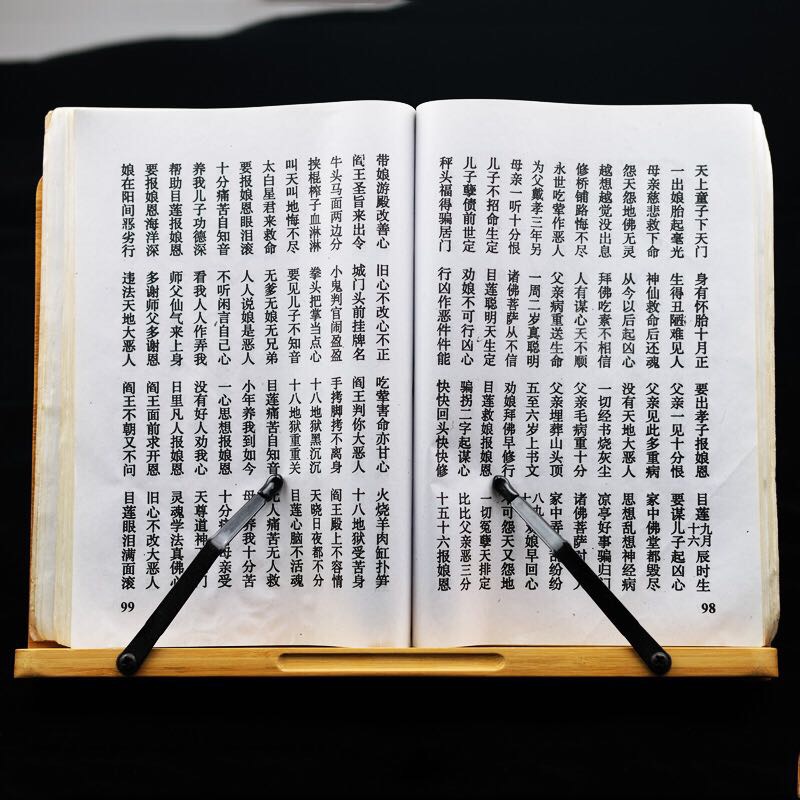 天上童子下天门 身有怀胎十月正 要出孝子报娘恩 目莲九月十六辰时生
一出娘胎起毫光 生得丑陋难见人 父亲一见十分恨 要谋儿子起凶心
母亲慈悲救下命 神仙救命后还魂 父亲见此多重病 家中佛堂都毁尽
怨天怨地佛无灵 从今以后起凶心 没有天地大恶人 思想乱想神经病
越想越觉没出息 拜佛吃素不相信 一切经书烧灰尘 凉亭好事骗归门
修桥铺路悔不尽 人有谋心天不顺 父亲毛病重十分 诸佛菩萨时人
永世吃荤作恶人 父亲病重送生命 父亲埋葬山头顶 家中弄纷纷
为父戴孝三年另 一周二岁真聪明 五至六岁上书文 八九娘早回心
母亲一听十分恨 诸佛菩萨从不信 劝娘拜佛早修行 可怨天又怨地
儿子不招命生定 目莲聪明天生定 目莲救娘报娘恩 一切冤孽天排定
儿子孽债前世定 劝娘不可行凶心 骗拐二字起谋心 比比父亲恶三分
秤头福得骗居门 行凶作恶件件能 快快回头快快修 十五十六报娘恩
98
带娘游殿改善心 旧心不改心不正 吃荤害命亦甘心 火烧羊肉缸扑笋
阎王圣旨来出令 城门头前挂牌名 阎王判你大恶人 十八地狱受苦身
牛头马面两边分 小鬼判官闹盈盈 手拷脚拷不离身 阎王殿上不容情
挟棍榨子血淋淋 拳头把掌当点心 十八地狱黑沉沉 天晓日夜都不分
叫天叫地悔不尽 要见儿子不知音 十八地狱重重关 目莲心脑不活魂
太白星君来救命 无爹无娘无兄弟 目莲痛苦自知音 无人痛苦无人救
要报娘恩眼泪滚 人人说娘是恶人 小年养我到如今 母养我十分苦
十分痛苦自知音 不听闲言自己心 一心思想报娘恩 十分母亲受
养我儿子功德深 看我人人作弄我 没有好人劝我心 天尊道神门
帮助目莲报娘恩 师父仙气来上身 日里凡人报娘恩 灵魂学法真佛心
要报娘恩海洋深 多谢师父多谢恩 阎王面前求开恩 旧心不改大恶人
娘在阳间恶劣行 违法天地大恶人 阎王不朝又不问 目莲眼泪满面滚
99